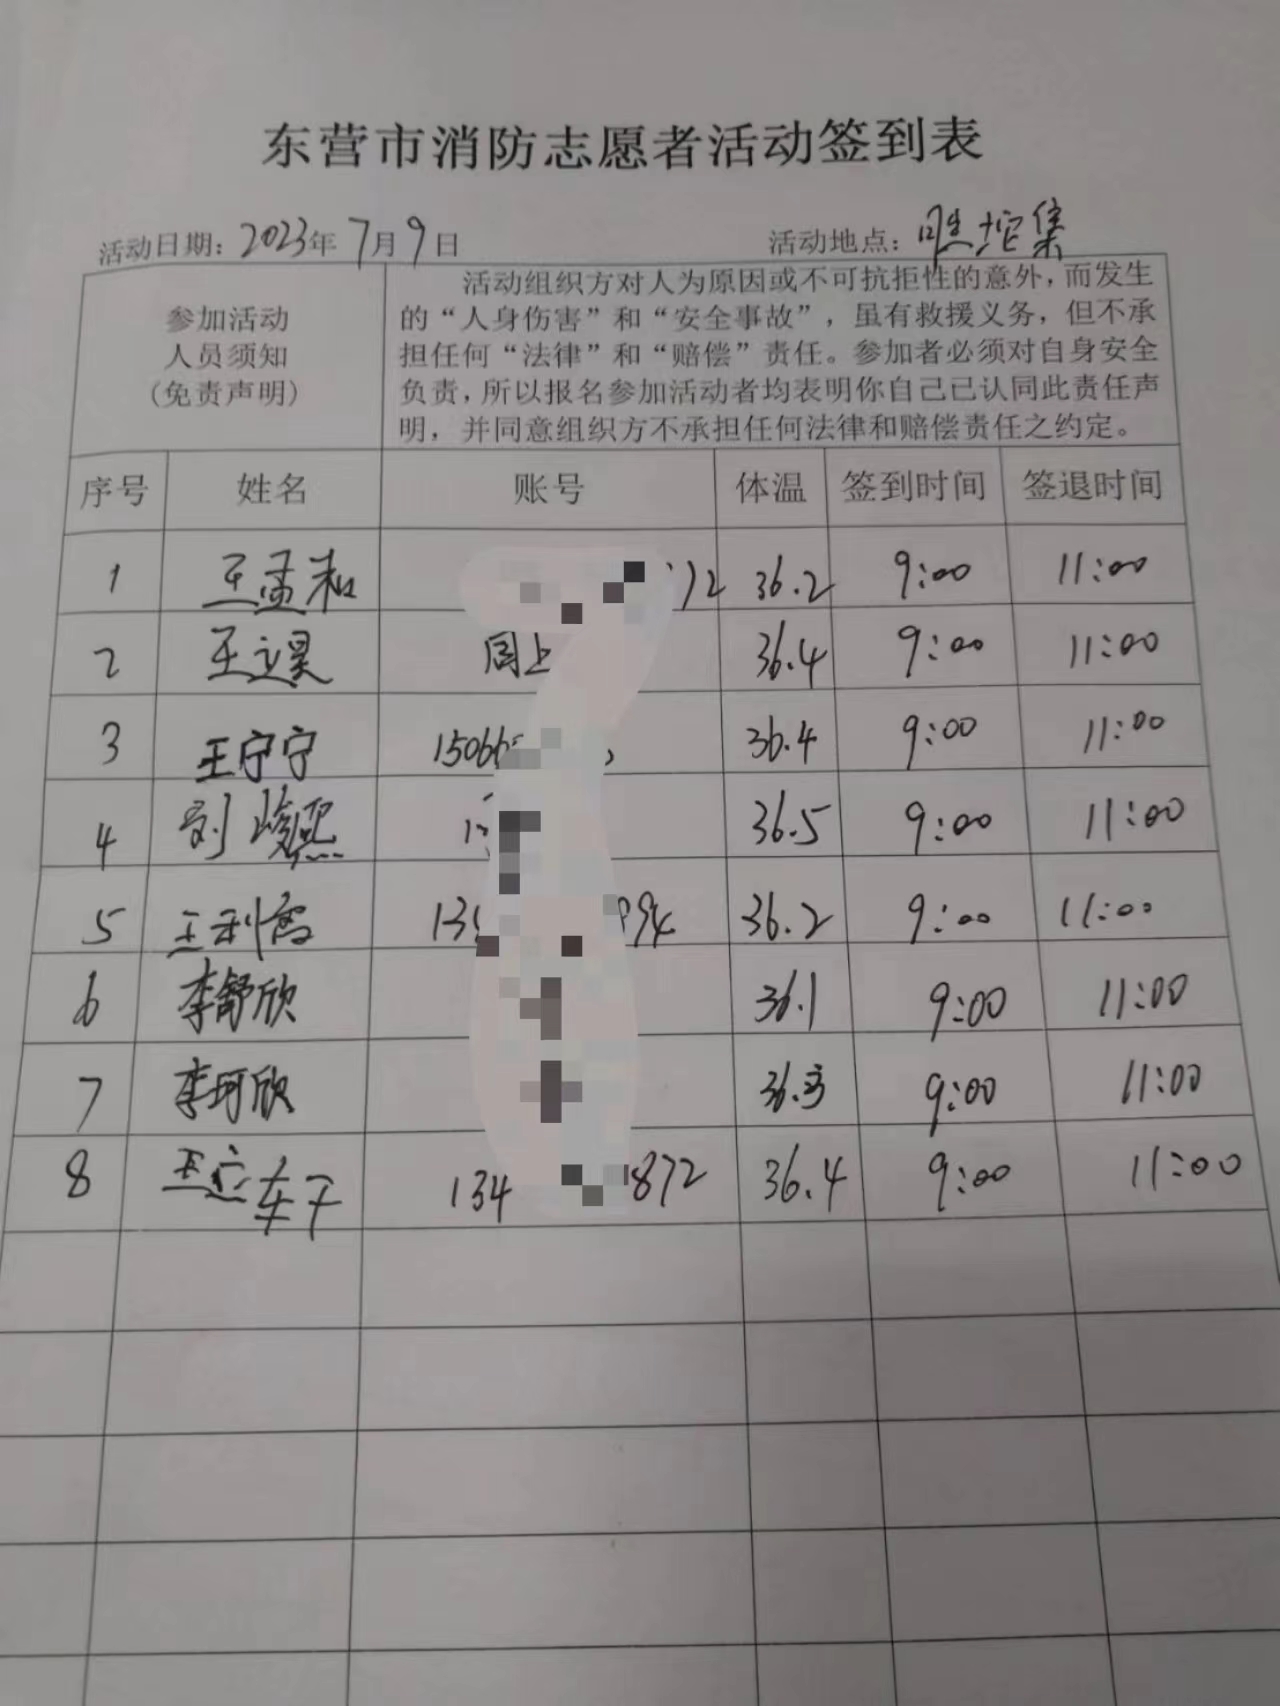 东营市消防志愿者活动签到表
活动日期：2023年7月9日 活动地点：胜坨集
参加活动
人员须知
(免责声明)
活动组织方对人为原因或不可抗拒性的意外，而发生
的“人身伤害”和“安全事故”，虽有救援义务，但不承
担任何“法律”和“赔偿”责任。参加者必须对自身安全
负责，所以报名参加活动者均表明你自己已认同此责任声
明，并同意组织方不承担任何法律和赔偿责任之约定。
序号 姓名 账号 体温 签到时间 签退时间
1 王孟和 72 36.2 9:00 11:00
2 王立昊 同上 36.4 9:00 11:00
3 王宁宁 15066 36.4 9:00 11:00
4 刘峻熙 36.5 9:00 11:00
5 王利 139 994 36.2 9:00 11:00
6 李舒欣 36.1 9:00 11:00
7 李珂欣 36.3 9:00 11:00
8 王 134 872 36.4 9:00 11:00